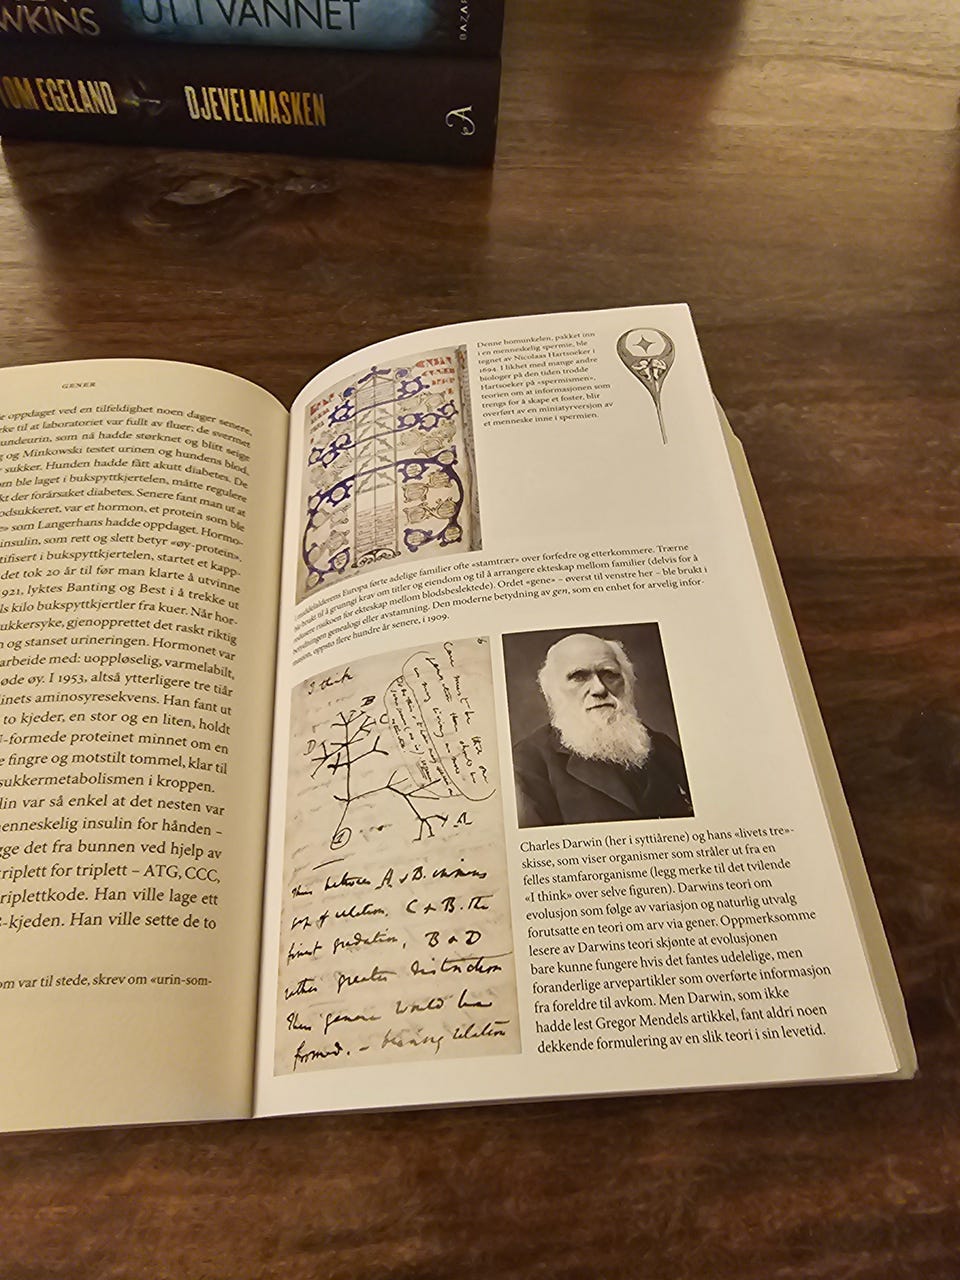 WKINS
UT I VANNET
BAZAR
TOM EGELAND
DJEVELMASKEN
A
GENER
oppdaget ved en tilfeldighet noen dager senere,
ke til at laboratoriet var fullt av fluer; de svermet
undeurin, som nå hadde størknet og blitt seige
og Minkowski testet urinen og hundens blod,
sukker. Hunden hadde fått akutt diabetes. De
om ble laget i bukspyttkjertelen, måtte regulere
kt der forårsaket diabetes. Senere fant man ut at
odsukkeret, var et hormon, et protein som ble
e» som Langerhans hadde oppdaget. Hormo-
insulin, som rett og slett betyr «øy-protein».
tifisert i bukspyttkjertelen, startet et kapp-
det tok 20 år til før man klarte å utvinne
1921, lyktes Banting og Best i å trekke ut
ls kilo bukspyttkjertler fra kuer. Når hor-
sukkersyke, gjenopprettet det raskt riktig
n og stanset urineringen. Hormonet var
arbeide med: uoppløselig, varmelabilt,
øde øy. I 1953, altså ytterligere tre tiår
linets aminosyresekvens. Han fant ut
to kjeder, en stor og en liten, holdt
-formede proteinet minnet om en
e fingre og motstilt tommel, klar til
sukkermetabolismen i kroppen.
lin var så enkel at det nesten var
nenneskelig insulin for hånden –
gge det fra bunnen ved hjelp av
triplett for triplett – ATG, CCC,
triplettkode. Han ville lage ett
-kjeden. Han ville sette de to
om var til stede, skrev om «urin-som-
Denne homunkelen, pakket inn
i en menneskelig spermie, ble
tegnet av Nicolaas Hartsoeker i
1694. I likhet med mange andre
biologer på den tiden trodde
Hartsoeker på «spermismen»,
teorien om at informasjonen som
trengs for å skape et foster, blir
overført av en miniatyrversjon av
et menneske inne i spermien.
I middelalderens Europa førte adelige familier ofte «stamtrær» over forfedre og etterkommere. Trærne
ble brukt til å grunngi krav om titler og eiendom og til å arrangere ekteskap mellom familier (delvis for å
redusere risikoen for ekteskap mellom blodsbeslektede). Ordet «gene» – øverst til venstre her – ble brukt i
betydningen genealogi eller avstamning. Den moderne betydning av gen, som en enhet for arvelig infor-
masjon, oppsto flere hundre år senere, i 1909.
I think
D
B
C
A
1
Thus between A & B. immens
gap of relation. C & B. the
finest gradation, B & D
rather greater distinction
Thus genera would be
formed. – bearing relation
Charles Darwin (her i syttiårene) og hans «livets tre»-
skisse, som viser organismer som stråler ut fra en
felles stamfarorganisme (legg merke til det tvilende
«I think» over selve figuren). Darwins teori om
evolusjon som følge av variasjon og naturlig utvalg
forutsatte en teori om arv via gener. Oppmerksomme
lesere av Darwins teori skjønte at evolusjonen
bare kunne fungere hvis det fantes udelelige, men
foranderlige arvepartikler som overførte informasjon
fra foreldre til avkom. Men Darwin, som ikke
hadde lest Gregor Mendels artikkel, fant aldri noen
dekkende formulering av en slik teori i sin levetid.